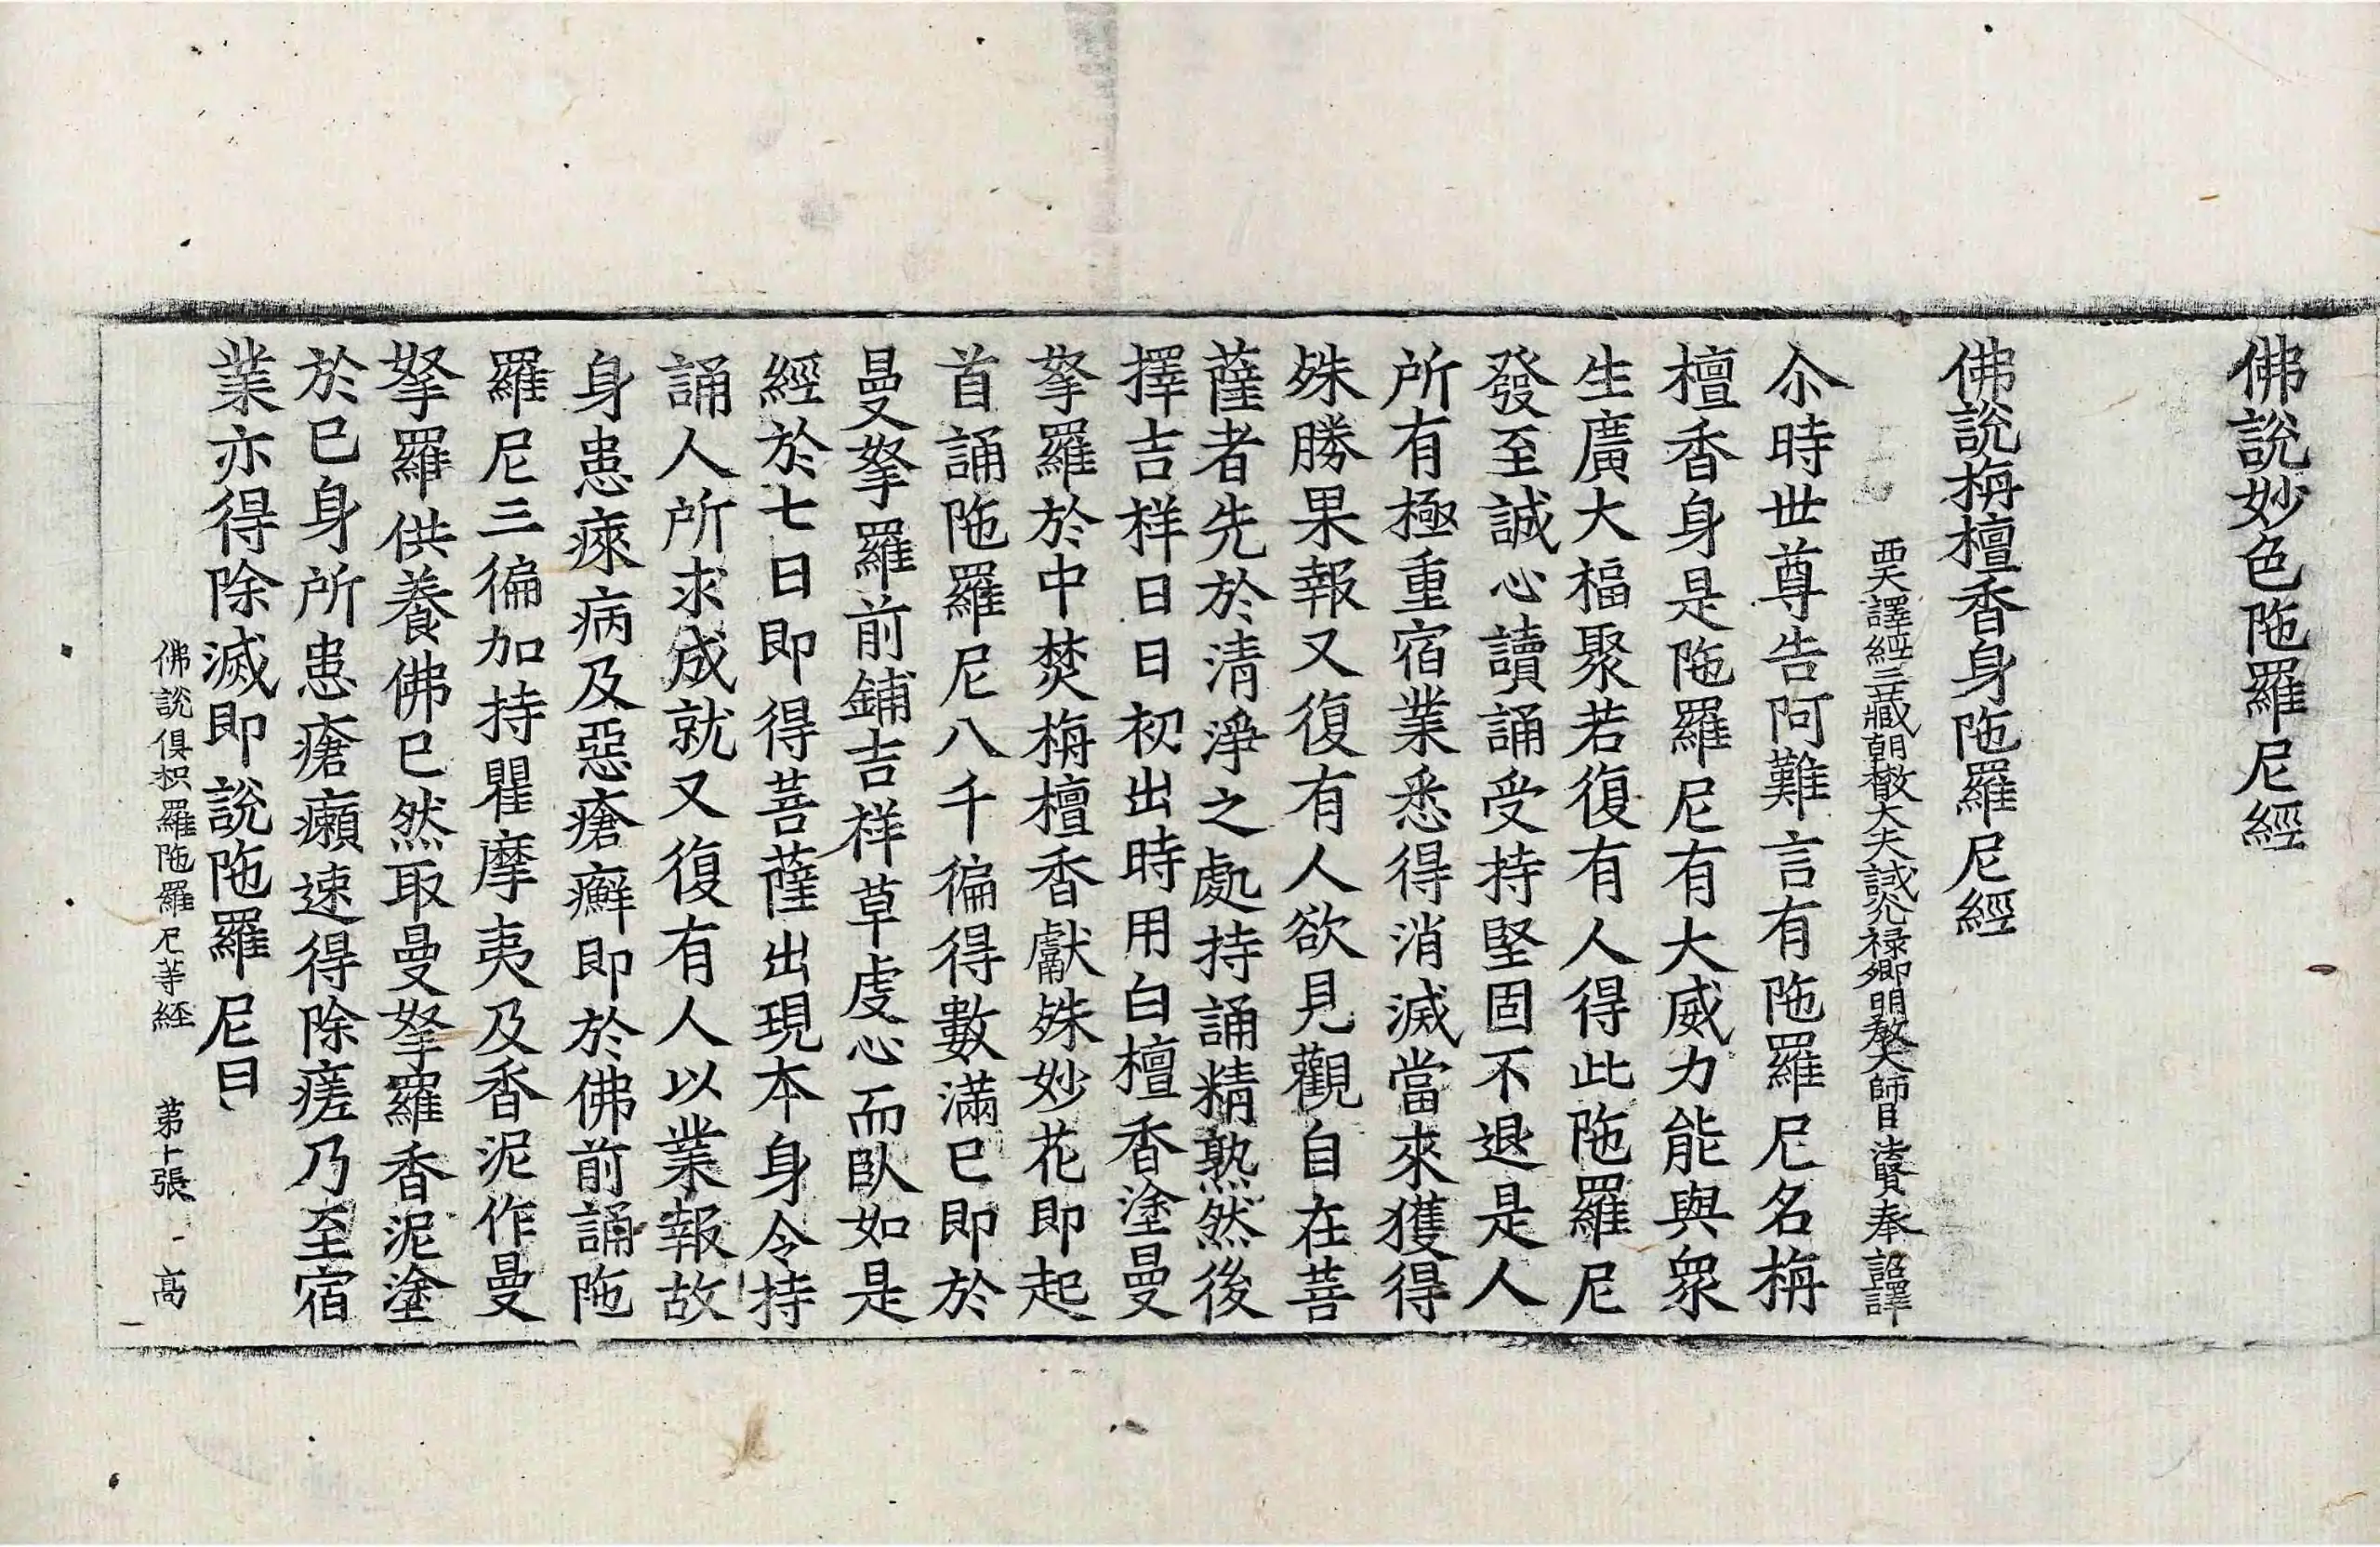 佛說妙色陁羅尼經
佛說栴檀香身陁羅尼經
西天譯經三藏朝散大夫試光祿卿明教大師臣法賢奉 詔譯
尒時世尊告阿難言有陁羅尼名栴
檀香身是陁羅尼有大威力能與衆
生廣大福聚若復有人得此陁羅尼
發至誠心讀誦受持堅固不退是人
所有極重宿業悉得消滅當來獲得
殊勝果報又復有人欲見觀自在菩
薩者先於清淨之處持誦精熟然後
擇吉祥日日初出時用白檀香塗曼
拏羅於中焚栴檀香獻殊妙花即起
首誦陁羅尼八千徧得數滿已即於
曼拏羅前鋪吉祥草虔心而臥如是
經於七日即得菩薩出現本身令持
誦人所求成就又復有人以業報故
身患瘶病及惡瘡癬即於佛前誦陁
羅尼三徧加持瞿摩夷及香泥作曼
拏羅供養佛已然取曼拏羅香泥塗
於已身所患瘡癩速得除瘥乃至宿
業亦得除滅即說陁羅尼曰
佛說俱枳羅陁羅尼等經 第十張 高